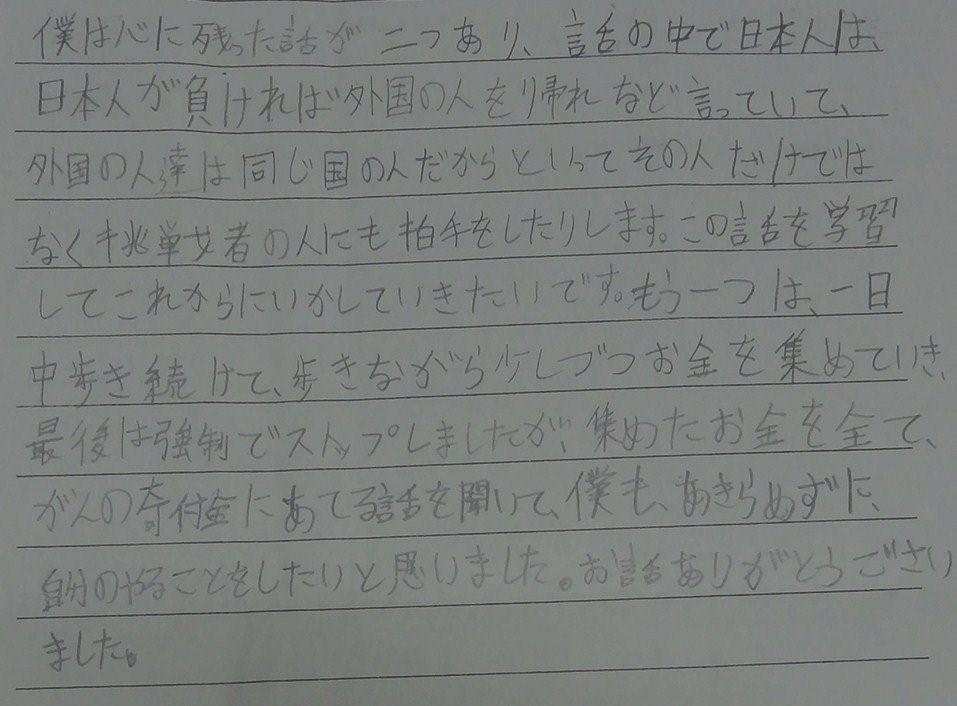 僕は心に残った話が二つあり、話の中で日本人は、
日本人が負ければ外国の人をり帰れなど言っていて、
外国の人達は同じ国の人だからといってその人だけでは
なく挑戦者の人にも拍手をしたりします。この話を学習
してこれからにいかしていきたいです。もう一つは、一日
中歩き続けて、歩きながら少しづつお金を集めていき、
最後は強制でストップしましたが、集めたお金を全て、
がんの寄付金にあてる話を聞いて、僕も、あきらめずに、
自分のやることをしたいと思いました。お話ありがとうござい
ました。